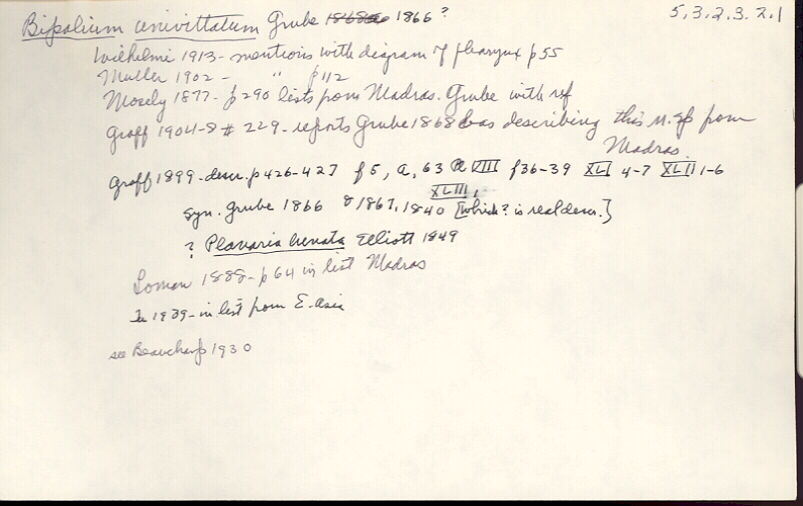 Bipalium univittatum Grube 1868 1866? 5,3.2.3.2.1
Wilhelmi 1913 - mentions with diagram of pharynx p 55
Muller 1902 - " p 112
Mosely 1877 - p 290 lists from Madras. Grube with ref
Graff 1904-8 # 229 - reports Grube 1868 as describing this n. sp from
Madras.
Graff 1899 - descr. p 426-427 f 5, a, 63 VIII f 36-39 XLI 4-7 XLII 1-6
XLIII,
syn. Grube 1866 & 1867, 1840 [which? is real descr.]
? Planaria lunata Elliott 1849
Loman 1888 - p 64 in list Madras
Tu 1939 - in list from E. Asia
see Beauchamp 1930